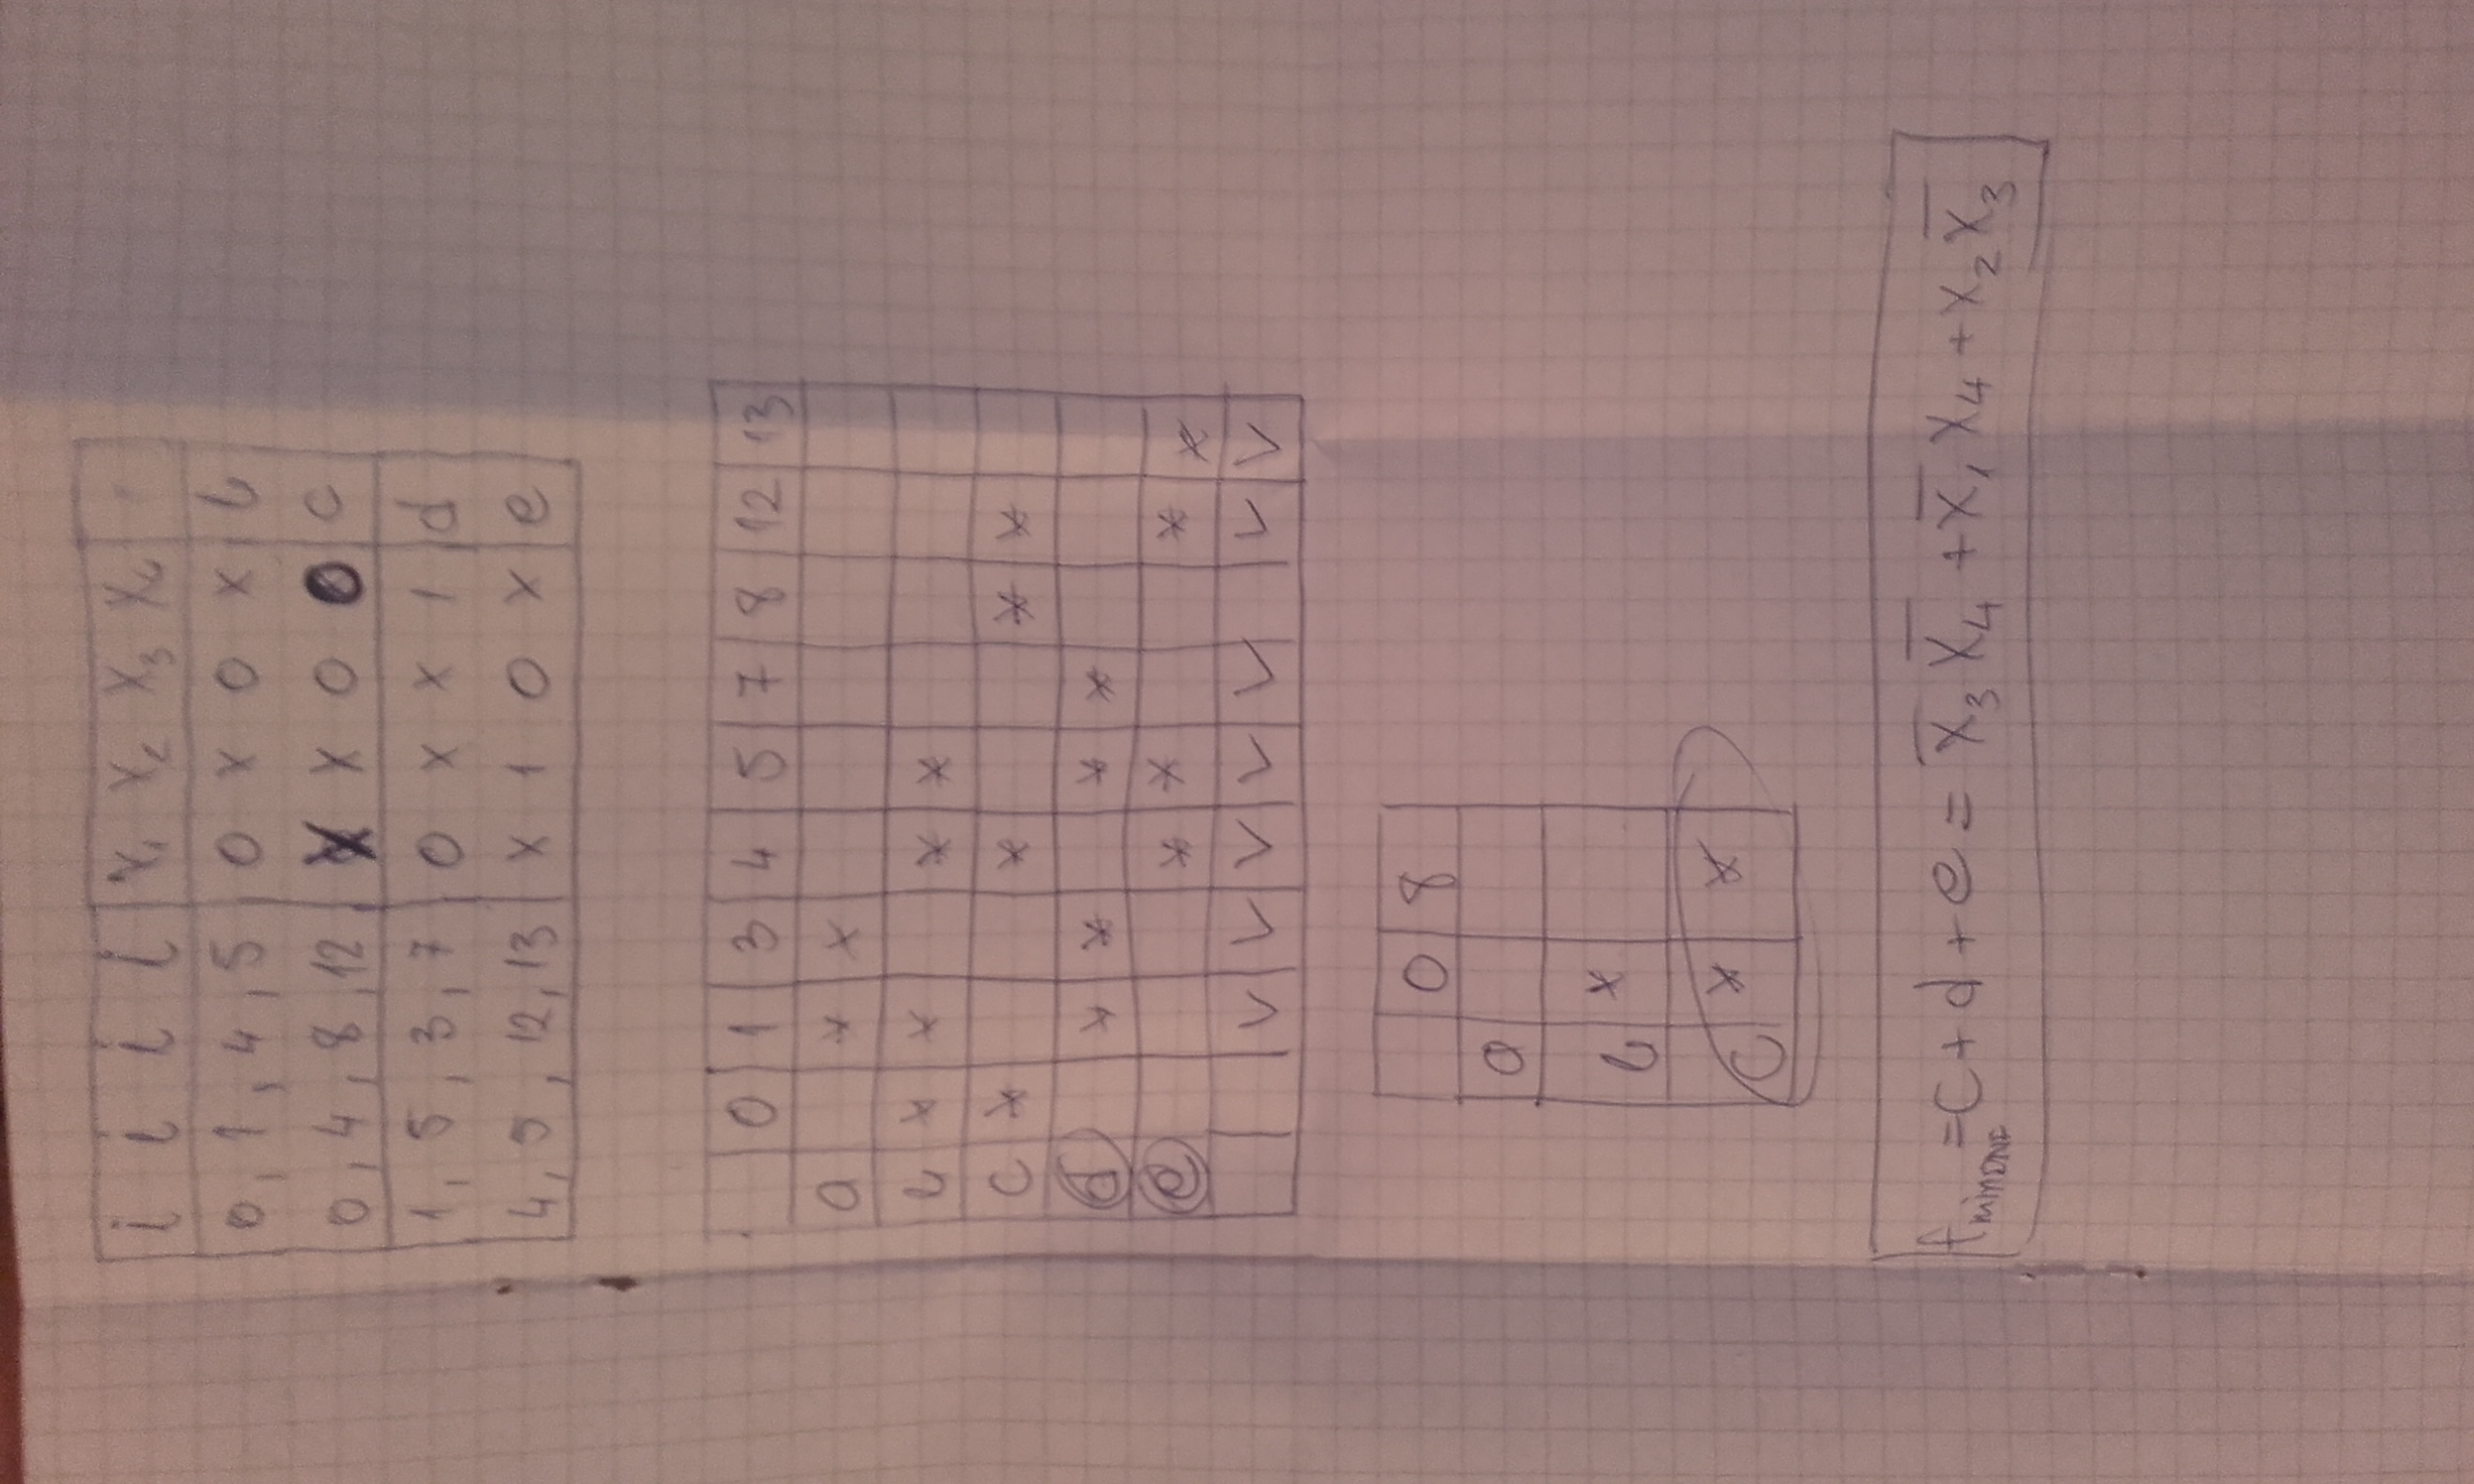 i i i i x₁ x₂ x₃ x₄
0, 1, 4, 5 0 x 0 x b
0, 4, 8, 12 X x 0 0 c
1, 5, 3, 7 0 x x 1 d
4, 5, 12, 13 x 1 0 x e
0 1 3 4 5 7 8 12 13
a * x
b * * * *
c * * * *
d * * * *
e * * * *
V V V V V V V
0 8
a
b *
c * *
f minDNF = c + d + e = x̅₃ x̅₄ + x̅₁ x₄ + x₂ x̅₃